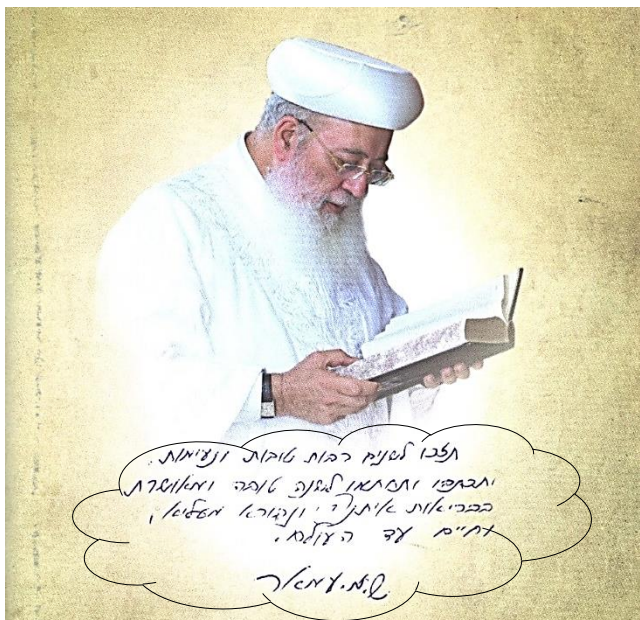 תזכו לשנים רבות טובות ונעימות.
ותכתבו ותחתמו לשנה טובה ומאושרת
בבריאות איתנה ונהורא מעליא,
וחיים עד העולם.
ש.מ. עמאר